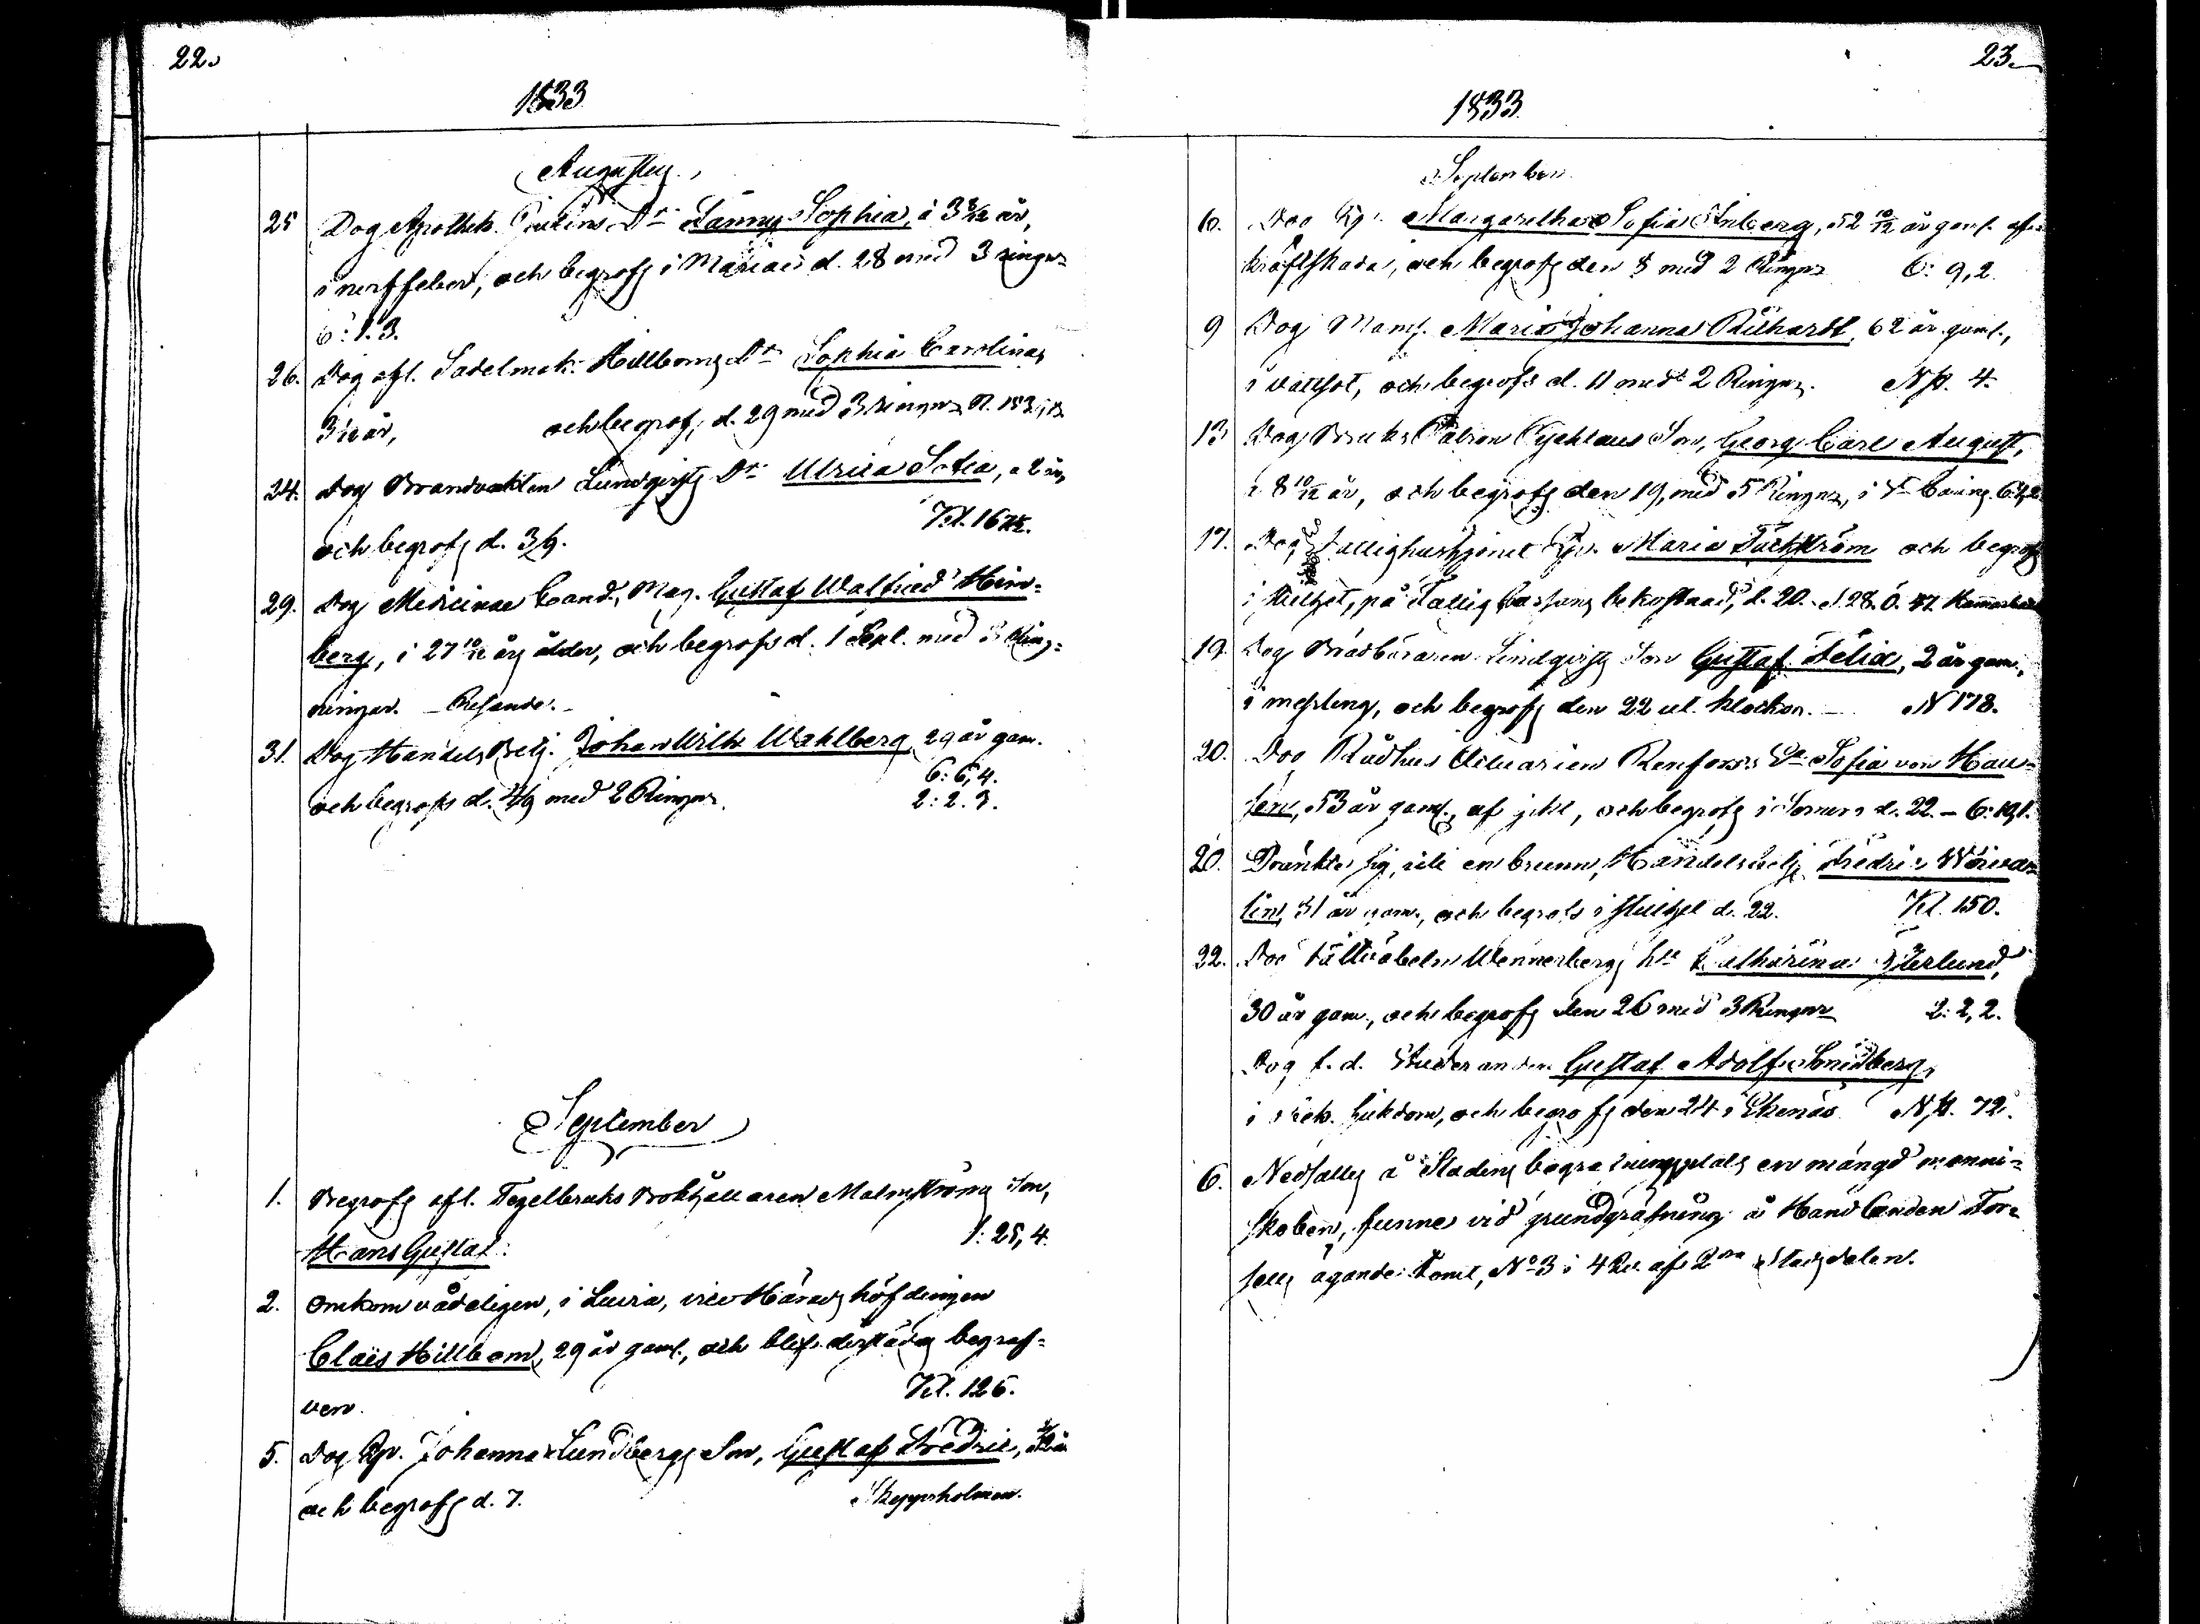 22.
1833
Augusti.
25 Dog Apothek. Dr Fanny Sophia, à 3 5/12 år,
i nerffeber, och begrofs i Mariæ d. 28 med 3 ringnr
6: 1.3.
26. Dog afl. Sadelmak. Hillboms Dr Sophia Carolina,
3 1/12 år, och begrofs d. 29 med 3 ringnr N. 153,
24. Dog Brandvakten Lundqvists Dr Ulrica Sofia, à 2 år,
och begrofs d. 3/9. Kl. 167 1/2.
29. Dog Medicinæ Cand., Mag. Gustaf Walfried Him-
berg, i 27 10/12 års ålder, och begrofs d. 1 Sept. med 3 Ring-
ningar. - Resande. -
31. Dog Handels Betj. Johan Wilh. Wahlberg 29 år gam.
och begrofs d. 4/9 med 2 Ringnr. 6: 6, 4.
2: 2. 3.
September
1. Begrofs afl. Tegelbruks Bokhållaren Malmströms Son,
Hans Gustaf. 1: 25, 4.
2. Omkom vådeligen, i Luvia, vice Häradshöfdingen
Claës Hillbom, 29 år gaml., och blef derstädes begraf-
ven. Kl. 126.
5. Dog Qv. Johanna Lundbergs Son, Gustaf Fredric, år
och begrofs d. 7. Skeppsholmen.
23.
1833.
September.
6. Dog Qv. Margaretha Sofia Enberg, 52 10/12 år gaml. af
kräftskada, och begrofs den 8 med 2 Ringnr 6: 9, 2.
9 Dog Mams. Maria Johanna Richardt, 62 år gaml.,
i vattsot, och begrofs d. 11 med 2 Ringnr. N.p. 4.
13 Dog Bruks Patron Tjchlaus Son, Georg Carl August,
i 8 10/12 år, och begrofs den 19, med 5 Ringnr, i
17. Dog Fattighushjonet Qv. Maria Täckström och begrofs
i stillhet, på Fattig Cassans bekostnad, d. 20.
19. Dog Brädbäraren Lindqvists Son Gustaf Felix, 2 år gam.,
i messling, och begrofs den 22 ut. klockor. - N 178.
20. Dog Rådhus Actuarien Renfors's Sofia von Hau-
sen, 53 år gaml., af och begrofs i d. 22. - 6: 19, 1.
20. Dränkte sig, uti en brunn, Handelsbetj. Fredric
lin, 31 år gam., och begrofs i stillhet d. 22. Kl. 150.
22. Dog Fältväbeln Wennerbergs h:u Catharina Österlund,
30 år gam., och begrofs den 26 med 3 Ringnr 2: 2, 2.
Dog f. d. Studeranden Gustaf Adolf Smedberg,
i sjukdom, och begrofs den 24 i Ekenäs N.p. 72.
6. Nedsattes å Stadens begrafningsplats en mängd menni-
skoben, funne vid grundgräfning å Handlanden Tor-
sells ägande tomt, No 3 i 4 Qu. af 2dra Stadsdelen.